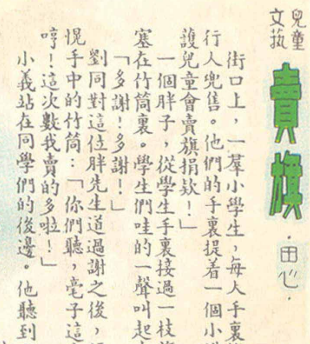 兒童
文
賣旗
·田心·
街口上，一羣小學生，每人手裏
行人兜售。他們的手裏提着一個小
護兒童會賣旗捐欵！」
一個胖子，從學生手裏接過一枝
塞在竹筒裏。學生們哇的一聲叫起
「多謝！多謝！」
劉同對這位胖先生道過謝之後，
愰手中的竹筒：「你們聽，毫子這
哼！這次數我賣的多啦！」
小義站在同學們的後邊。他聽到